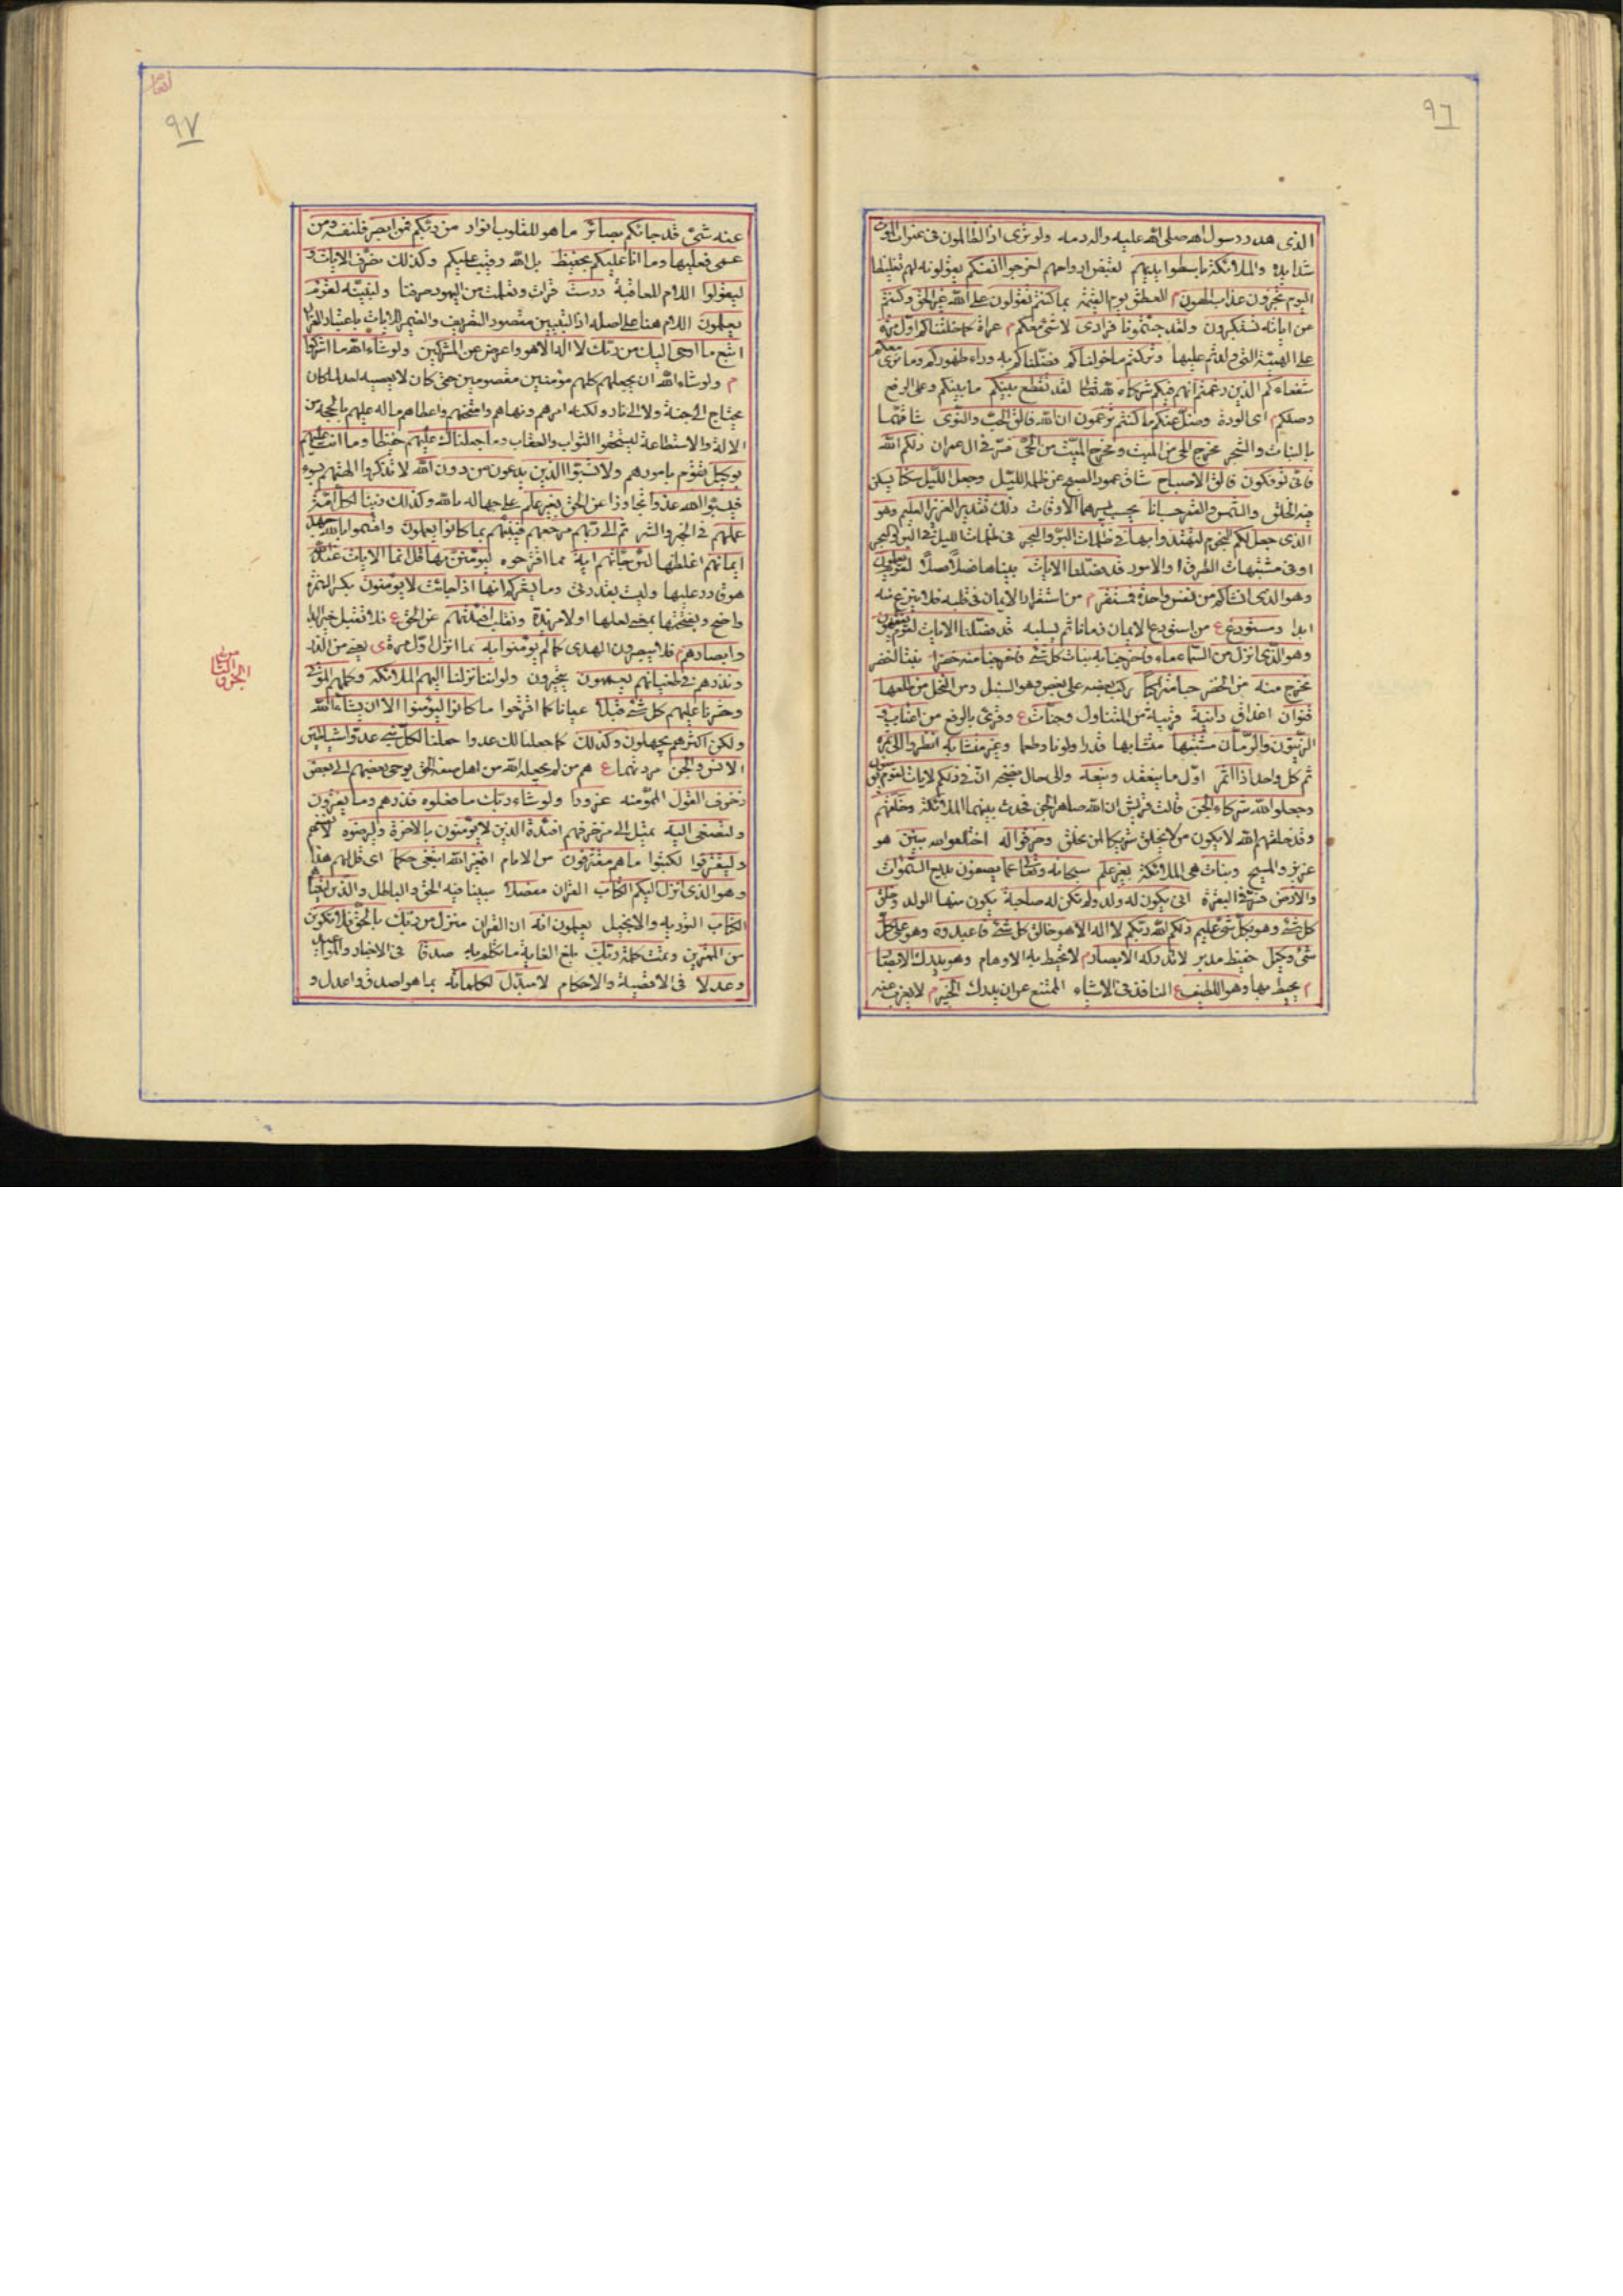 ٩٦
الذى هدر رسول الله صلى الله عليه واله دمه ولو ترى اذ الظالمون فى غمرات الموت
شدايده والملائكة باسطوا ايديهم لقبض ارواحهم اخرجوا انفسكم يقولونه لهم تغليظا
اليوم تجزون عذاب الهون م العطش يوم القيمة بما كنتم تقولون على الله غير الحق وكنتم
عن اياته تستكبرون ولقد جئتمونا فرادى لا شئ معكم م عراة كما خلقناكم اول مرة
على الهيئة التى ولدتم عليها وتركتم ما خولناكم فضلناكم به وراء ظهوركم وما نرى معكم
شفعاءكم الذين زعمتم انهم فيكم شركاء لله تعالى لقد تقطع بينكم ما بينكم وعلى الرفع
وصلكم اى المودة وضل عنكم ما كنتم تزعمون ان الله فالق الحب والنوى شاقهما
بالنبات والشجر يخرج الحى من الميت ومخرج الميت من الحى فسر فى ال عمران ذلكم الله
فانى تؤفكون فالق الاصباح شاق عمود الصبح عن ظلمة الليل وجعل الليل سكنا يسكن
فيه الخلق والشمس والقمر حسبانا يحسب بسيرهما الاوقات ذلك تقدير العزيز العليم وهو
الذى جعل لكم النجوم لتهتدوا بها فى ظلمات البر والبحر فى ظلمات الليل فى البر والبحر
او فى مشتبهات الطرق او الامور قد فصلنا الايات بيناها فصلا فصلا لقوم يعلمون
وهو الذى انشاكم من نفس واحدة فمستقر م من استقرار الايمان فى قلبه فلا ينزع منه
ابدا ومستودع ع من استودع الايمان زمانا ثم يسلبه قد فصلنا الايات لقوم يفقهون
وهو الذى انزل من السماء ماء فاخرجنا به نبات كل شئ فاخرجنا منه خضرا نبتا اخضر
نخرج منه من الخضر حبا متراكبا ركب بعضه على بعض وهو السنبل ومن النخل من طلعها
قنوان اعذاق دانية قريبة من المتناول وجنات ع وقرئ بالرفع من اعناب و
الزيتون والرمان مشتبها متشابها قدرا ولونا وطعما وغير متشابه انظروا الى ثمره
ثم كل واحد اذا اثمر اول ما ينعقد وينعه والى حال نضجه ان فى ذلكم لايات لقوم يؤمنون
وجعلوا لله شركاء الجن قالت قريش ان الله صاهر الجن فحدث بينهما الملائكة وخلقهم
وقد خلقهم الله لا يكون من لا يخلق شريكا لمن يخلق وخرقوا له اختلقوا لله بنين هو
عزير والمسيح وبنات هى الملائكة بغير علم سبحانه وتعالى عما يصفون بديع السموات
والارض فسر فى البقرة انى يكون له ولد ولم تكن له صاحبة يكون منها الولد وخلق
كل شئ وهو بكل شئ عليم ذلكم الله ربكم لا اله الا هو خالق كل شئ فاعبدوه وهو على كل
شئ وكيل حفيظ مدبر لا تدركه الابصار م لا تحيط به الاوهام وهو يدرك الابصار
م يحيط بها وهو اللطيف ع النافذ فى الاشياء الممتنع عن ان يدرك الخبير م لا يعزب عنه
انعام
٩٧
عنه شئ قد جائكم بصائر ما هو للقلوب انوار من ربكم فمن ابصر فلنفسه ومن
عمى فعليها وما انا عليكم بحفيظ بل الله رقيب عليكم وكذلك نصرف الايات و
ليقولوا اللام للعاقبة درست قرات وتعلمت من اليهود ولنبينه لقوم
يعلمون اللام هنا على اصله اذ التبيين مقصود التصريف والضمير للايات باعتبار القران
اتبع ما اوحى اليك من ربك لا اله الا هو واعرض عن المشركين ولو شاء الله ما اشركوا
م ولو شاء الله ان يجعلهم كلهم مؤمنين معصومين حتى كان لا يعصيه احد لما كان
يحتاج الى جنة ولا الى نار ولكنه امرهم ونهاهم وامتحنهم واعطاهم ما له عليهم بالحجة من
الالة والاستطاعة ليستحقوا الثواب والعقاب وما جعلناك عليهم حفيظا وما انت عليهم
بوكيل تقوم بامورهم ولا تسبوا الذين يدعون من دون الله لا تذكروا الهتهم بسوء
فيسبوا الله عدوا تجاوزا عن الحق بغير علم على جهالة بالله وكذلك زينا لكل امة
عملهم فى الخير والشر ثم الى ربهم مرجعهم فينبئهم بما كانوا يعملون واقسموا بالله جهد
ايمانهم اغلظها لئن جائتهم اية مما اقترحوه ليؤمنن بها قل انما الايات عند الله
هو قادر عليها وليست بقدرتى وما يشعركم انها اذا جائت لا يؤمنون بكسر الهمزة
واضح وبفتحها بمعنى لعلها او لا مزيدة ونقلب افئدتهم عن الحق ع فلا تقبل خيرا ابدا
وابصارهم فلا يبصرون الهدى كما لم يؤمنوا به بما انزل اول مرة ى يعنى من الذر
ونذرهم فى طغيانهم يعمهون يتحيرون ولو اننا نزلنا اليهم الملائكة وكلمهم الموتى
وحشرنا عليهم كل شئ قبلا عيانا كما اقترحوا ما كانوا ليؤمنوا الا ان يشاء الله
ولكن اكثرهم يجهلون وكذلك كما جعلنا لك عدوا جعلنا لكل نبى عدوا شياطين
الانس والجن مردتهما ع هم من لم يجعله الله من اهل صفة الحق يوحى بعضهم الى بعض
زخرف القول المموه منه غرورا ولو شاء ربك ما فعلوه فذرهم وما يفترون
ولتصغى اليه تميل الى زخرفهم افئدة الذين لا يؤمنون بالاخرة وليرضوه لانفسهم
وليقترفوا ليكتسبوا ما هم مقترفون من الاثام افغير الله ابتغى حكما اى قل لهم هذا
وهو الذى انزل اليكم الكتاب القران مفصلا مبينا فيه الحق والباطل والذين اتيناهم
الكتاب التورية والانجيل يعلمون انه ان القران منزل من ربك بالحق فلا تكونن
من الممترين وتمت كلمة ربك بلغ الغاية ما تكلم به صدقا فى الاخبار والمواعيد
وعدلا فى الاقضية والاحكام لا مبدل لكلماته بما هو اصدق واعدل و
الجزو الثامن